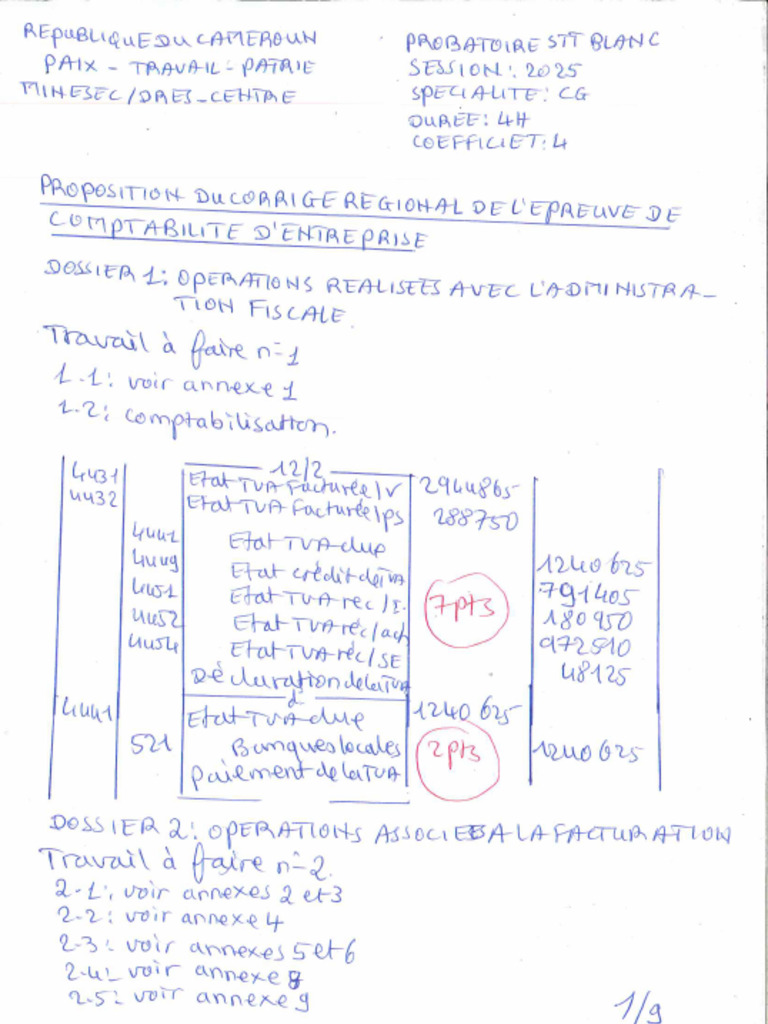 REPUBLIQUE DU CAMEROUN
PAIX - TRAVAIL - PATRIE
MINESEC/DRES-CENTRE
PROBATOIRE STT BLANC
SESSION : 2025
SPECIALITE : CG
DURÉE : 4H
COEFFICIET : 4
PROPOSITION DU CORRIGE REGIONAL DE L'EPREUVE DE
COMPTABILITE D'ENTREPRISE
DOSSIER 1 : OPERATIONS REALISEES AVEC L'ADMINISTRA-
TION FISCALE.
Travail à faire n°1
1.1 : voir annexe 1
1.2 : comptabilisation.
12/2
4431 Etat TVA Facturée/V 2944865
4432 Etat TVA Facturée/ps 288750
4441 Etat TVA due 1240625
4449 Etat crédit de TVA 791405
4451 Etat TVA rec/I. 180950
4452 Etat TVA réc/ach 972510
4454 Etat TVA réc/SE 48125
7pts
Déclaration de la TVA
d°
4441 Etat TVA due 1240625
521 Banques locales 1240625
2pts
Paiement de la TVA
DOSSIER 2 : OPERATIONS ASSOCIEES A LA FACTURATION
Travail à faire n°2.
2-1 : voir annexes 2 et 3
2-2 : voir annexe 4
2-3 : voir annexes 5 et 6
2-4 : voir annexe 8
2-5 : voir annexe 9
1/9